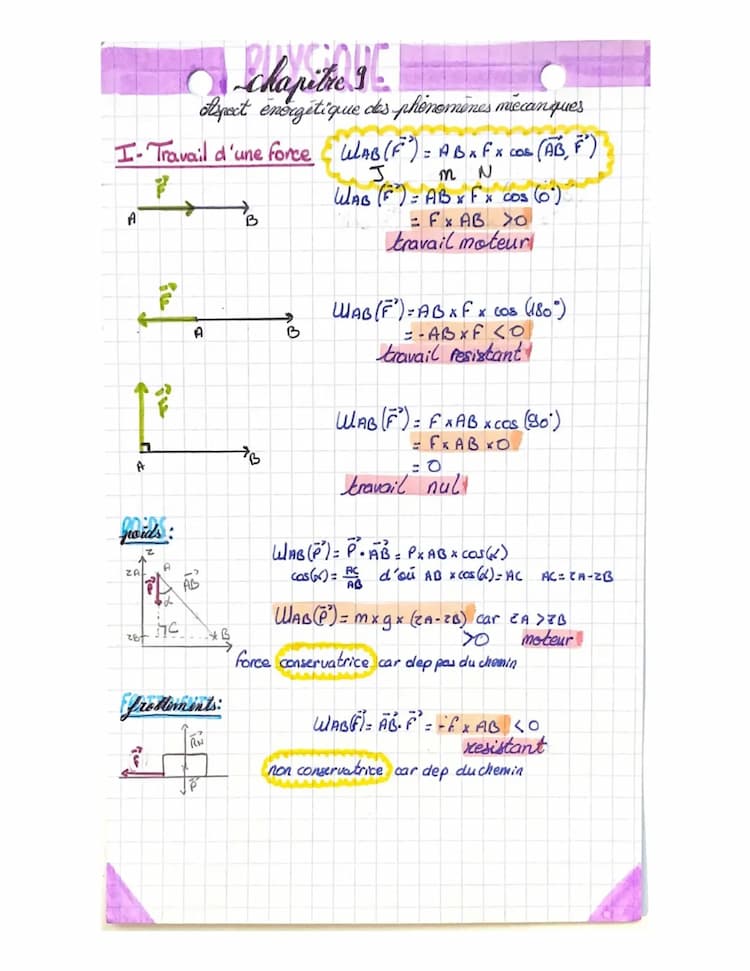 PHYSIQUE
chapitre 9
Aspect énergétique des phénomènes mécaniques
I- Travail d'une force
W_AB(F⃗) = AB x F x cos (AB⃗, F⃗)
J m N
F⃗
A B
W_AB (F⃗) = AB x F x cos (0°)
= F x AB >0
travail moteur
F⃗
A B
W_AB(F⃗) = AB x F x cos (180°)
= -AB x F < 0
travail resistant
F⃗
A B
W_AB(F⃗) = F x AB x cos (90°)
= F x AB x 0
= 0
travail nul
POIDS
poids:
z
zA A
P⃗ AB⃗
α
C
zB B
W_AB(P⃗) = P⃗ · AB⃗ = P x AB x cos(α)
cos(α) = AC/AB d'où AB x cos(α) = AC AC = zA - zB
W_AB(P⃗) = m x g x (zA - zB) car zA > zB
>0 moteur
force conservatrice car dep pas du chemin
FROTTEMENTS
frottements:
R⃗N
F⃗
P⃗
W_AB(F⃗) = AB⃗ · F⃗ = -f x AB < 0
resistant
non conservatrice car dep du chemin